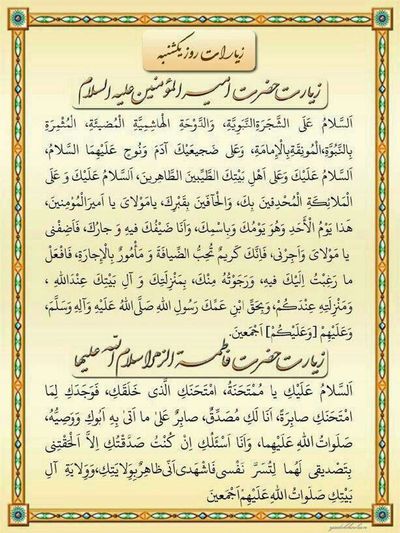 زیارات روز یکشنبه
زیارت حضرت امیرالمؤمنین علیه السلام
اَلسَّلامُ عَلَی الشَّجَرَةِ النَّبَوِیَّةِ، وَالدَّوْحَةِ الْهاشِمِیَّةِ الْمُضیئَةِ، الْمُثْمِرَةِ
بِالنَّبُوَّةِ،الْمُونِقَةِبِالْإِمامَةِ، وَعَلی ضَجیعَیْكَ آدَمَ وَنُوحٍ عَلَیْهِمَا السَّلامُ،
اَلسَّلامُ عَلَیْكَ وَعَلی اَهْلِ بَیْتِكَ الطَّیِّبینَ الطَّاهِرینَ، اَلسَّلامُ عَلَیْكَ وَ عَلَی
الْمَلائِكَةِ الْمُحْدِقینَ بِكَ، وَالْحآفّینَ بِقَبْرِكَ، یامَوْلایَ یا اَمیرَالْمُؤْمِنینَ،
هذا یَوْمُ الْأَحَدِ وَهُوَ یَوْمُكَ وَبِاسْمِكَ، وَاَنَا ضَیْفُكَ فیهِ وَ جارُكَ، فَاَضِفْنی
یا مَوْلایَ وَاَجِرْنی، فَاِنَّكَ كَریمٌ تُحِبُّ الضِّیافَةَ وَ مَأْمُورٌ بِالْإِجارَةِ، فَافْعَلْ
ما رَغِبْتُ اِلَیْكَ فیهِ، وَرَجَوْتُهُ مِنْكَ، بِمَنْزِلَتِكَ وَ آلِ بَیْتِكَ عِنْدَاللهِ ،
وَمَنْزِلَتِهِ عِنْدَكُمْ، وَبِحَقِّ ابْنِ عَمِّكَ رَسُولِ اللهِ صَلَّی اللهُ عَلَیْهِ وَآلِهِ وَسَلَّمَ،
وَعَلَیْهِمْ [وَعَلَیْكُمْ] اَجْمَعینَ.
زیارت حضرت فاطمة الزهرا سلام الله علیها
اَلسَّلامُ عَلَیْكِ یا مُمْتَحَنَةُ، امْتَحَنَكِ الَّذی خَلَقَكِ، فَوَجَدَكِ لِمَا
امْتَحَنَكِ صابِرَةً، اَنَا لَكِ مُصَدِّقٌ، صابِرٌ عَلی ما اَتی بِهِ اَبُوكِ وَوَصِیُّهُ،
صَلَواتُ اللهِ عَلَیْهِما، وَاَنَا اَسْئَلُكِ اِنْ كُنْتُ صَدَّقْتُكِ اِلاَّ اَلْحَقْتِنی
بِتَصْدیقی لَهُما لِتُسَرَّ نَفْسی فَاشْهَدی اَنّی ظاهِرٌ بِوِلایَتِكِ،وَوِلایَةِ آلِ
بَیْتِكِ صَلَواتُ اللهِ عَلَیْهِمْ اَجْمَعینَ